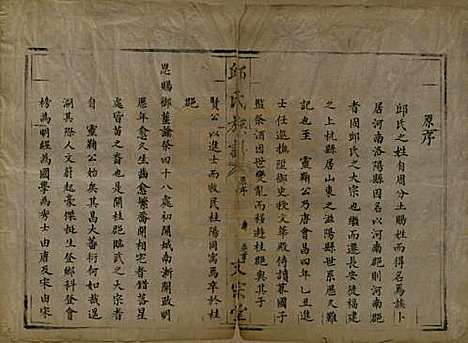 原序
邱氏之姓自周分土賜姓而得名爲族卜
居河南洛陽縣因名以河南郡則河南郡
者固邱氏之大宗也繼而還長安徒福建
之上杭縣居山東之滋陽縣世系歷久難
記也至 靈鞠公乃唐會昌四年乙丑進
士任巡撫陞御史授文華殿侍讀尊國子
監祭酒因世變亂而移遊桂郡與其子
邱氏族譜 原序 文宗堂
賢公以進士而牧民桂陽同寓爲卒於桂
郡
恩賜御葬諭祭四十八處初開城南漸開政明
歷年愈久生齒愈繁喬開相錯落星
處皆苗之裔也是開桂郡臨武之大宗者
自 靈鞠公始矣其昌大蕃衍何如哉邁
溯其際人文蔚起豪傑挺生登鄉科登會
榜爲明經爲國學爲秀士由唐及宋由宋